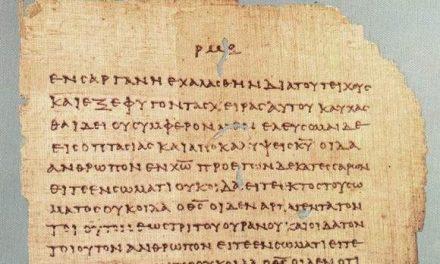 ΕΝ ϹΑΡΓΑΝΗ ΕΧΑΛΑϹΘΗΝ ΔΙΑ ΤΟΥ ΤΕΙΧΟΥϹ
ΚΑΙ ΕΞΕΦΥΓΟΝ ΤΑϹ ΧΕΙΡΑϹ ΑΥΤΟΥ ΚΑΥΧΑϹ
ΘΑΙ ΔΕΙ ΟΥ ϹΥΜΦΕΡΟΝ ΜΕΝ ΕΛΕΥϹΟΜΑΙ ΔΕ
ΕΙϹ ΟΠΤΑϹΙΑϹ ΚΑΙ ΑΠΟΚΑΛΥΨΕΙϹ Κ̅Υ̅ ΟΙΔΑ
ΑΝΘΡΩΠΟΝ ΕΝ Χ̅Ω̅ ΠΡΟ ΕΤΩΝ ΔΕΚΑΤΕϹϹΑΡΩΝ
ΕΙΤΕ ΕΝ ϹΩΜΑΤΙ ΟΥΚ ΟΙΔΑ ΕΙΤΕ ΕΚΤΟϹ ΤΟΥ ϹΩ
ΜΑΤΟϹ ΟΥΚ ΟΙΔΑ Ο Θ̅Ϲ̅ ΟΙΔΕΝ ΑΡΠΑΓΕΝΤΑ ΤΟΝ
ΤΟΙΟΥΤΟΝ ΕΩϹ ΤΡΙΤΟΥ ΟΥΡΑΝΟΥ ΚΑΙ ΟΙΔΑ ΤΟΝ
ΤΟΙΟΥΤΟΝ ΑΝΘΡΩΠΟΝ ΕΙΤΕ ΕΝ ϹΩΜΑΤΙ ΕΙΤΕ